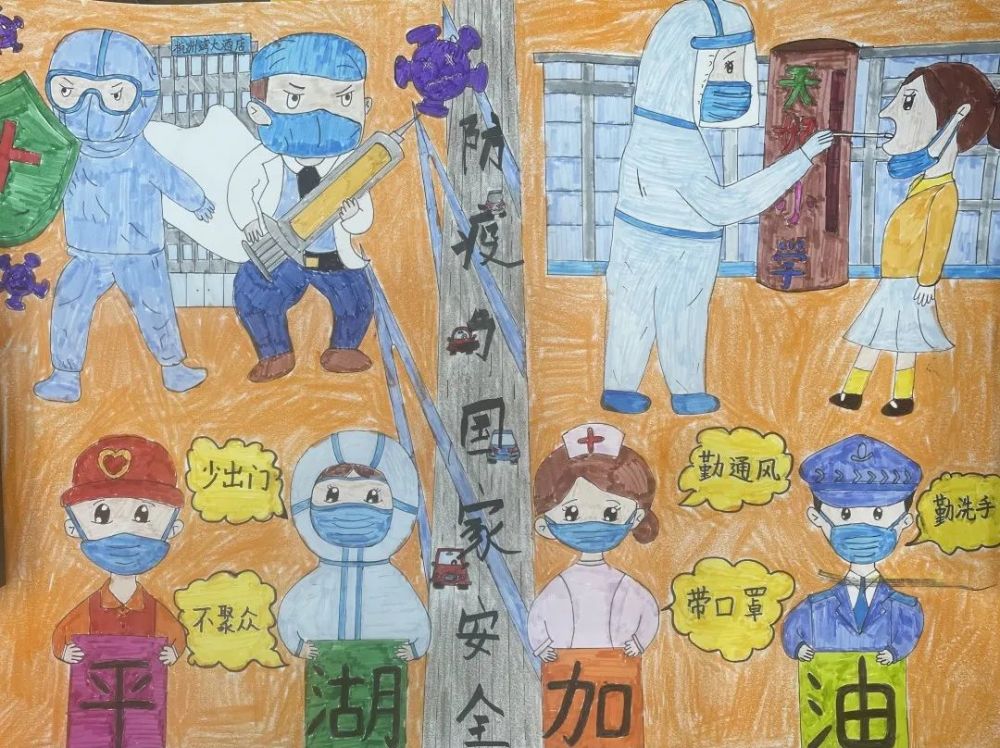 大酒店
防疫与国家安全
学
少出门
勤通风
勤洗手
不聚众
带口罩
平湖加油